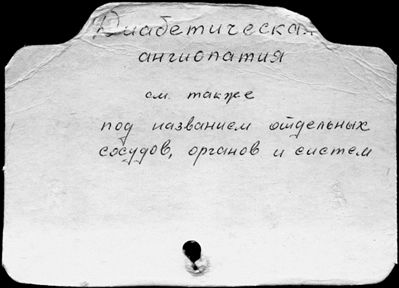 Диабетическая
ангиопатия
см. также
под названием отдельных
сосудов, органов и систем